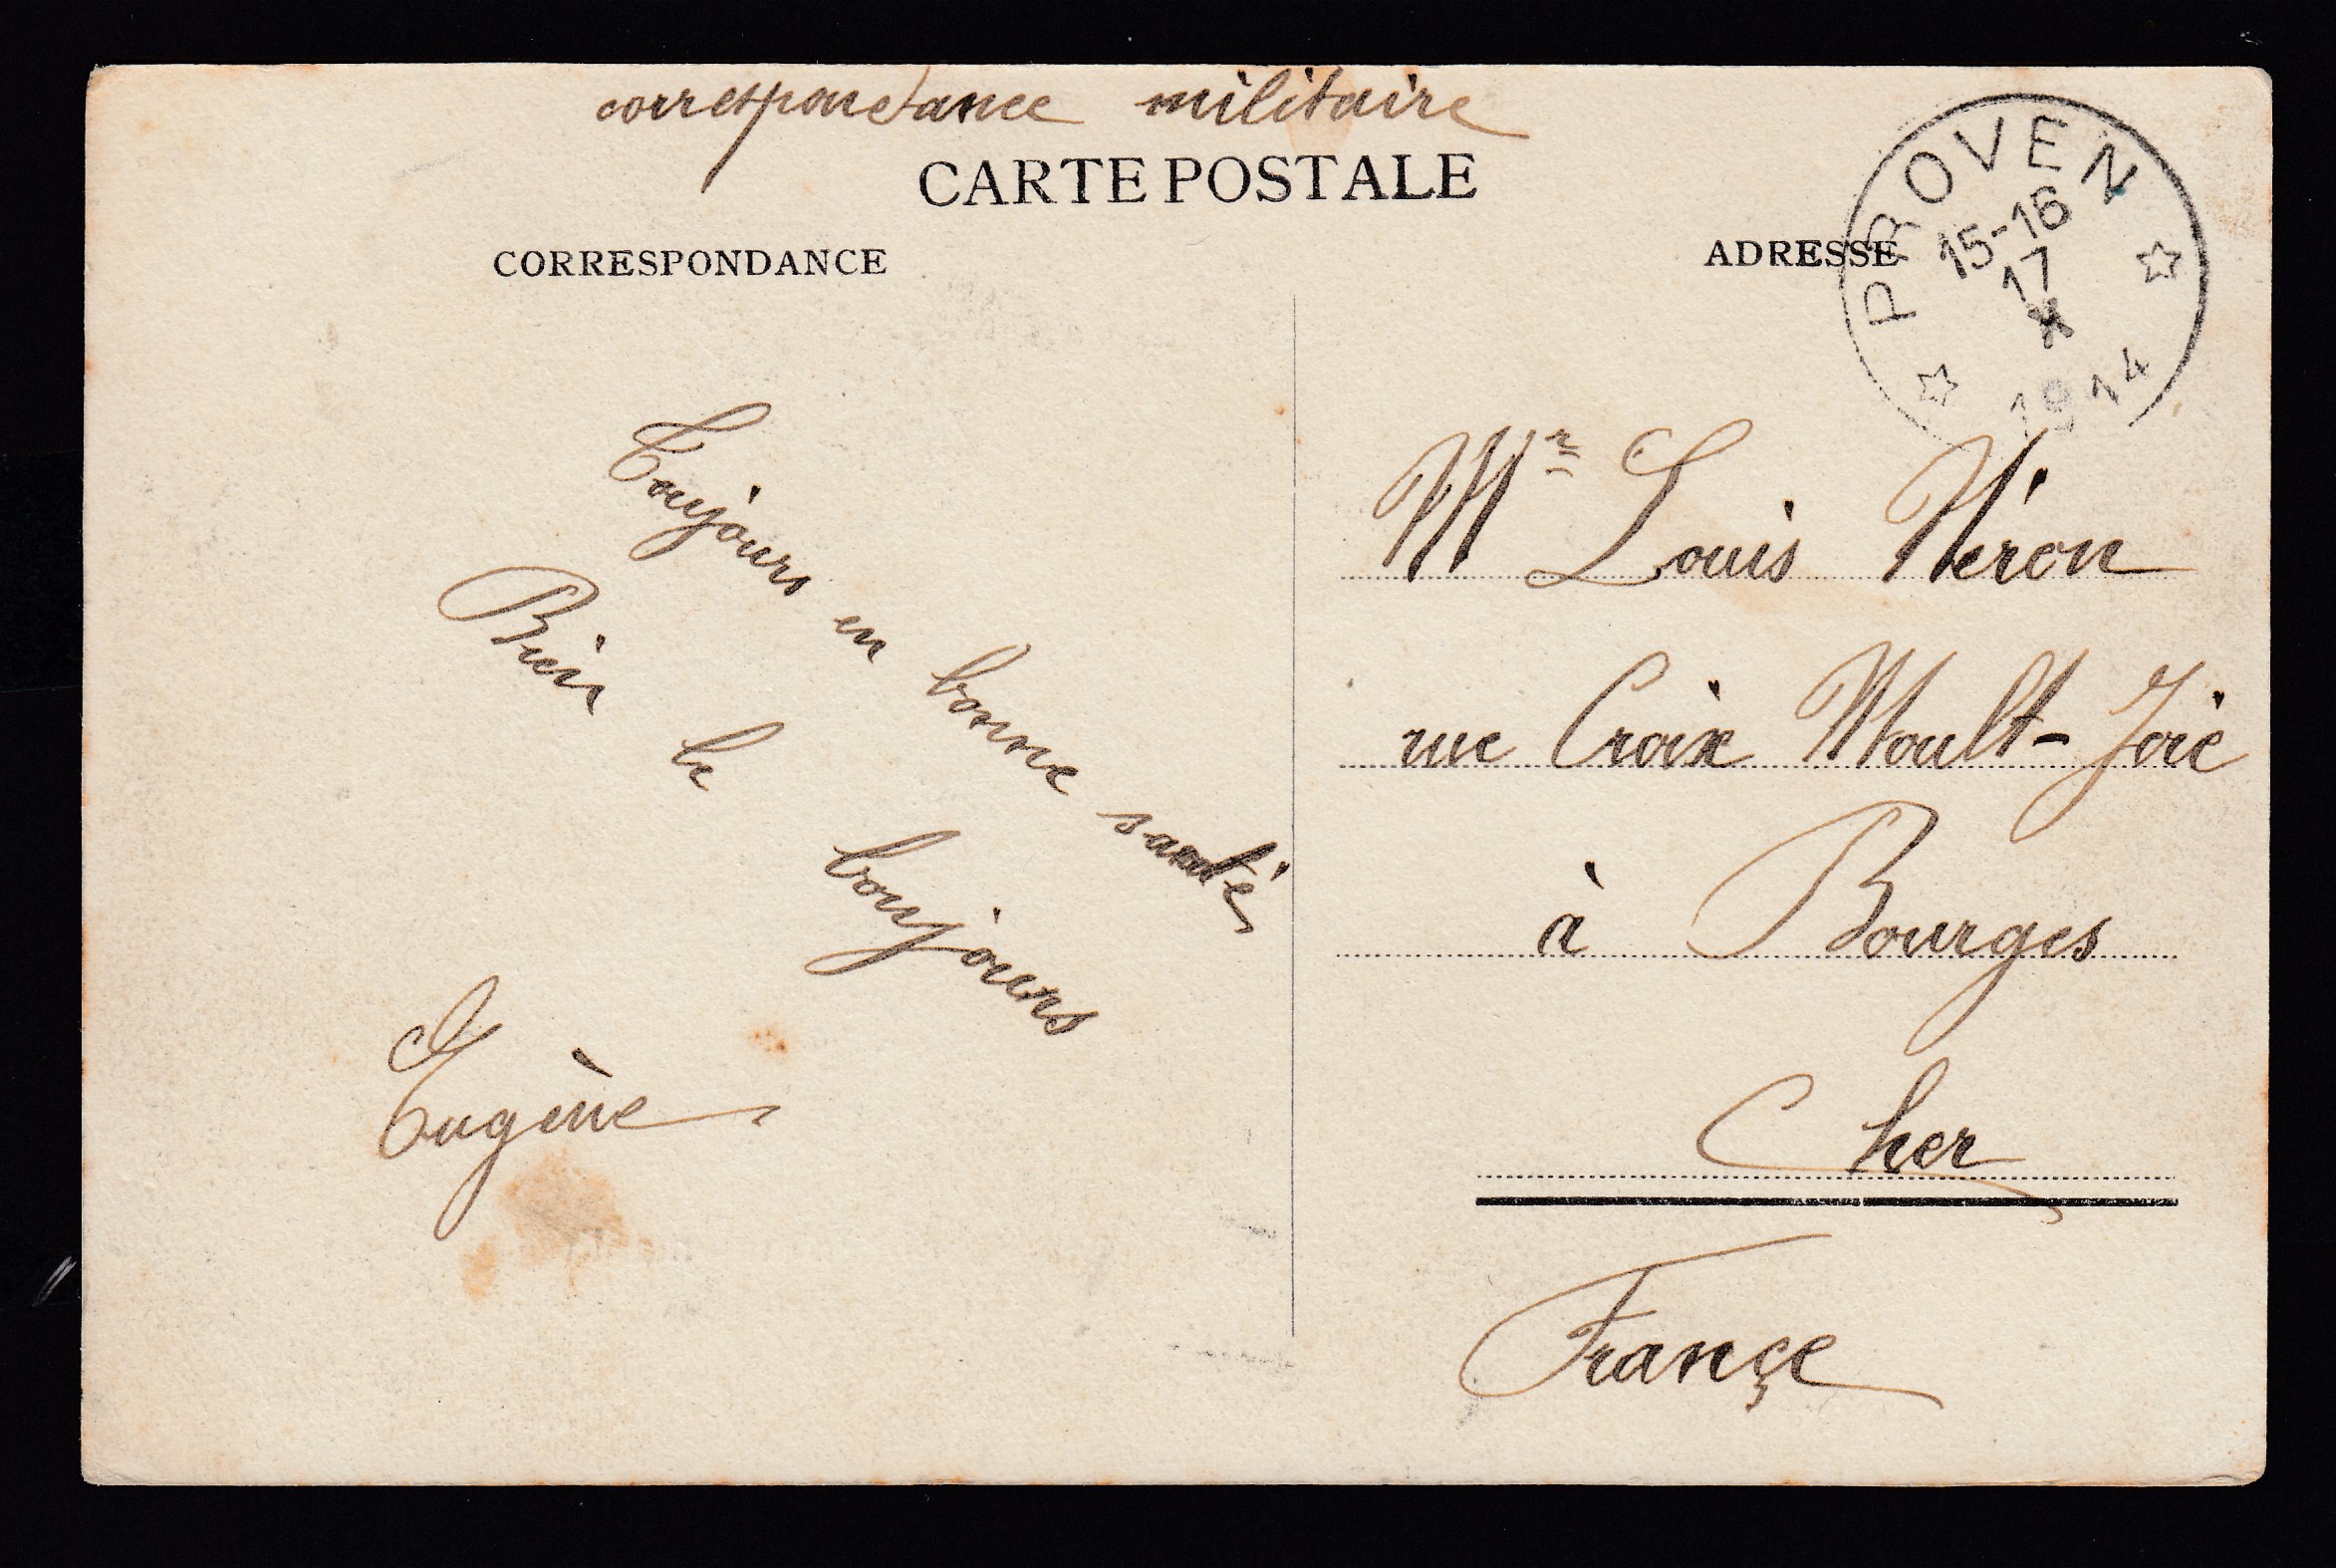 correspondance militaire
CARTE POSTALE
CORRESPONDANCE
ADRESSE
PROVEN
15-16
17
X
1914
Toujours en bonne santé
Bien le boujours
Eugène
Mr Louis Néron
rue Croix Moult-Joie
à Bourges
Cher
Françe